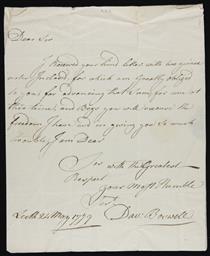 Dear Sir
I Received your kind letter with two guinea
notes Inclosed for which am Greatly obliged
to you, for advancing that Sum for me at
this time, and Begs you will excuse the
freedom I have and am giving you So much
trouble, I am Dear
Sir with the Greatest
Respect
your Most Humble
Sert
Leith 24 May 1779
Davd Boswell